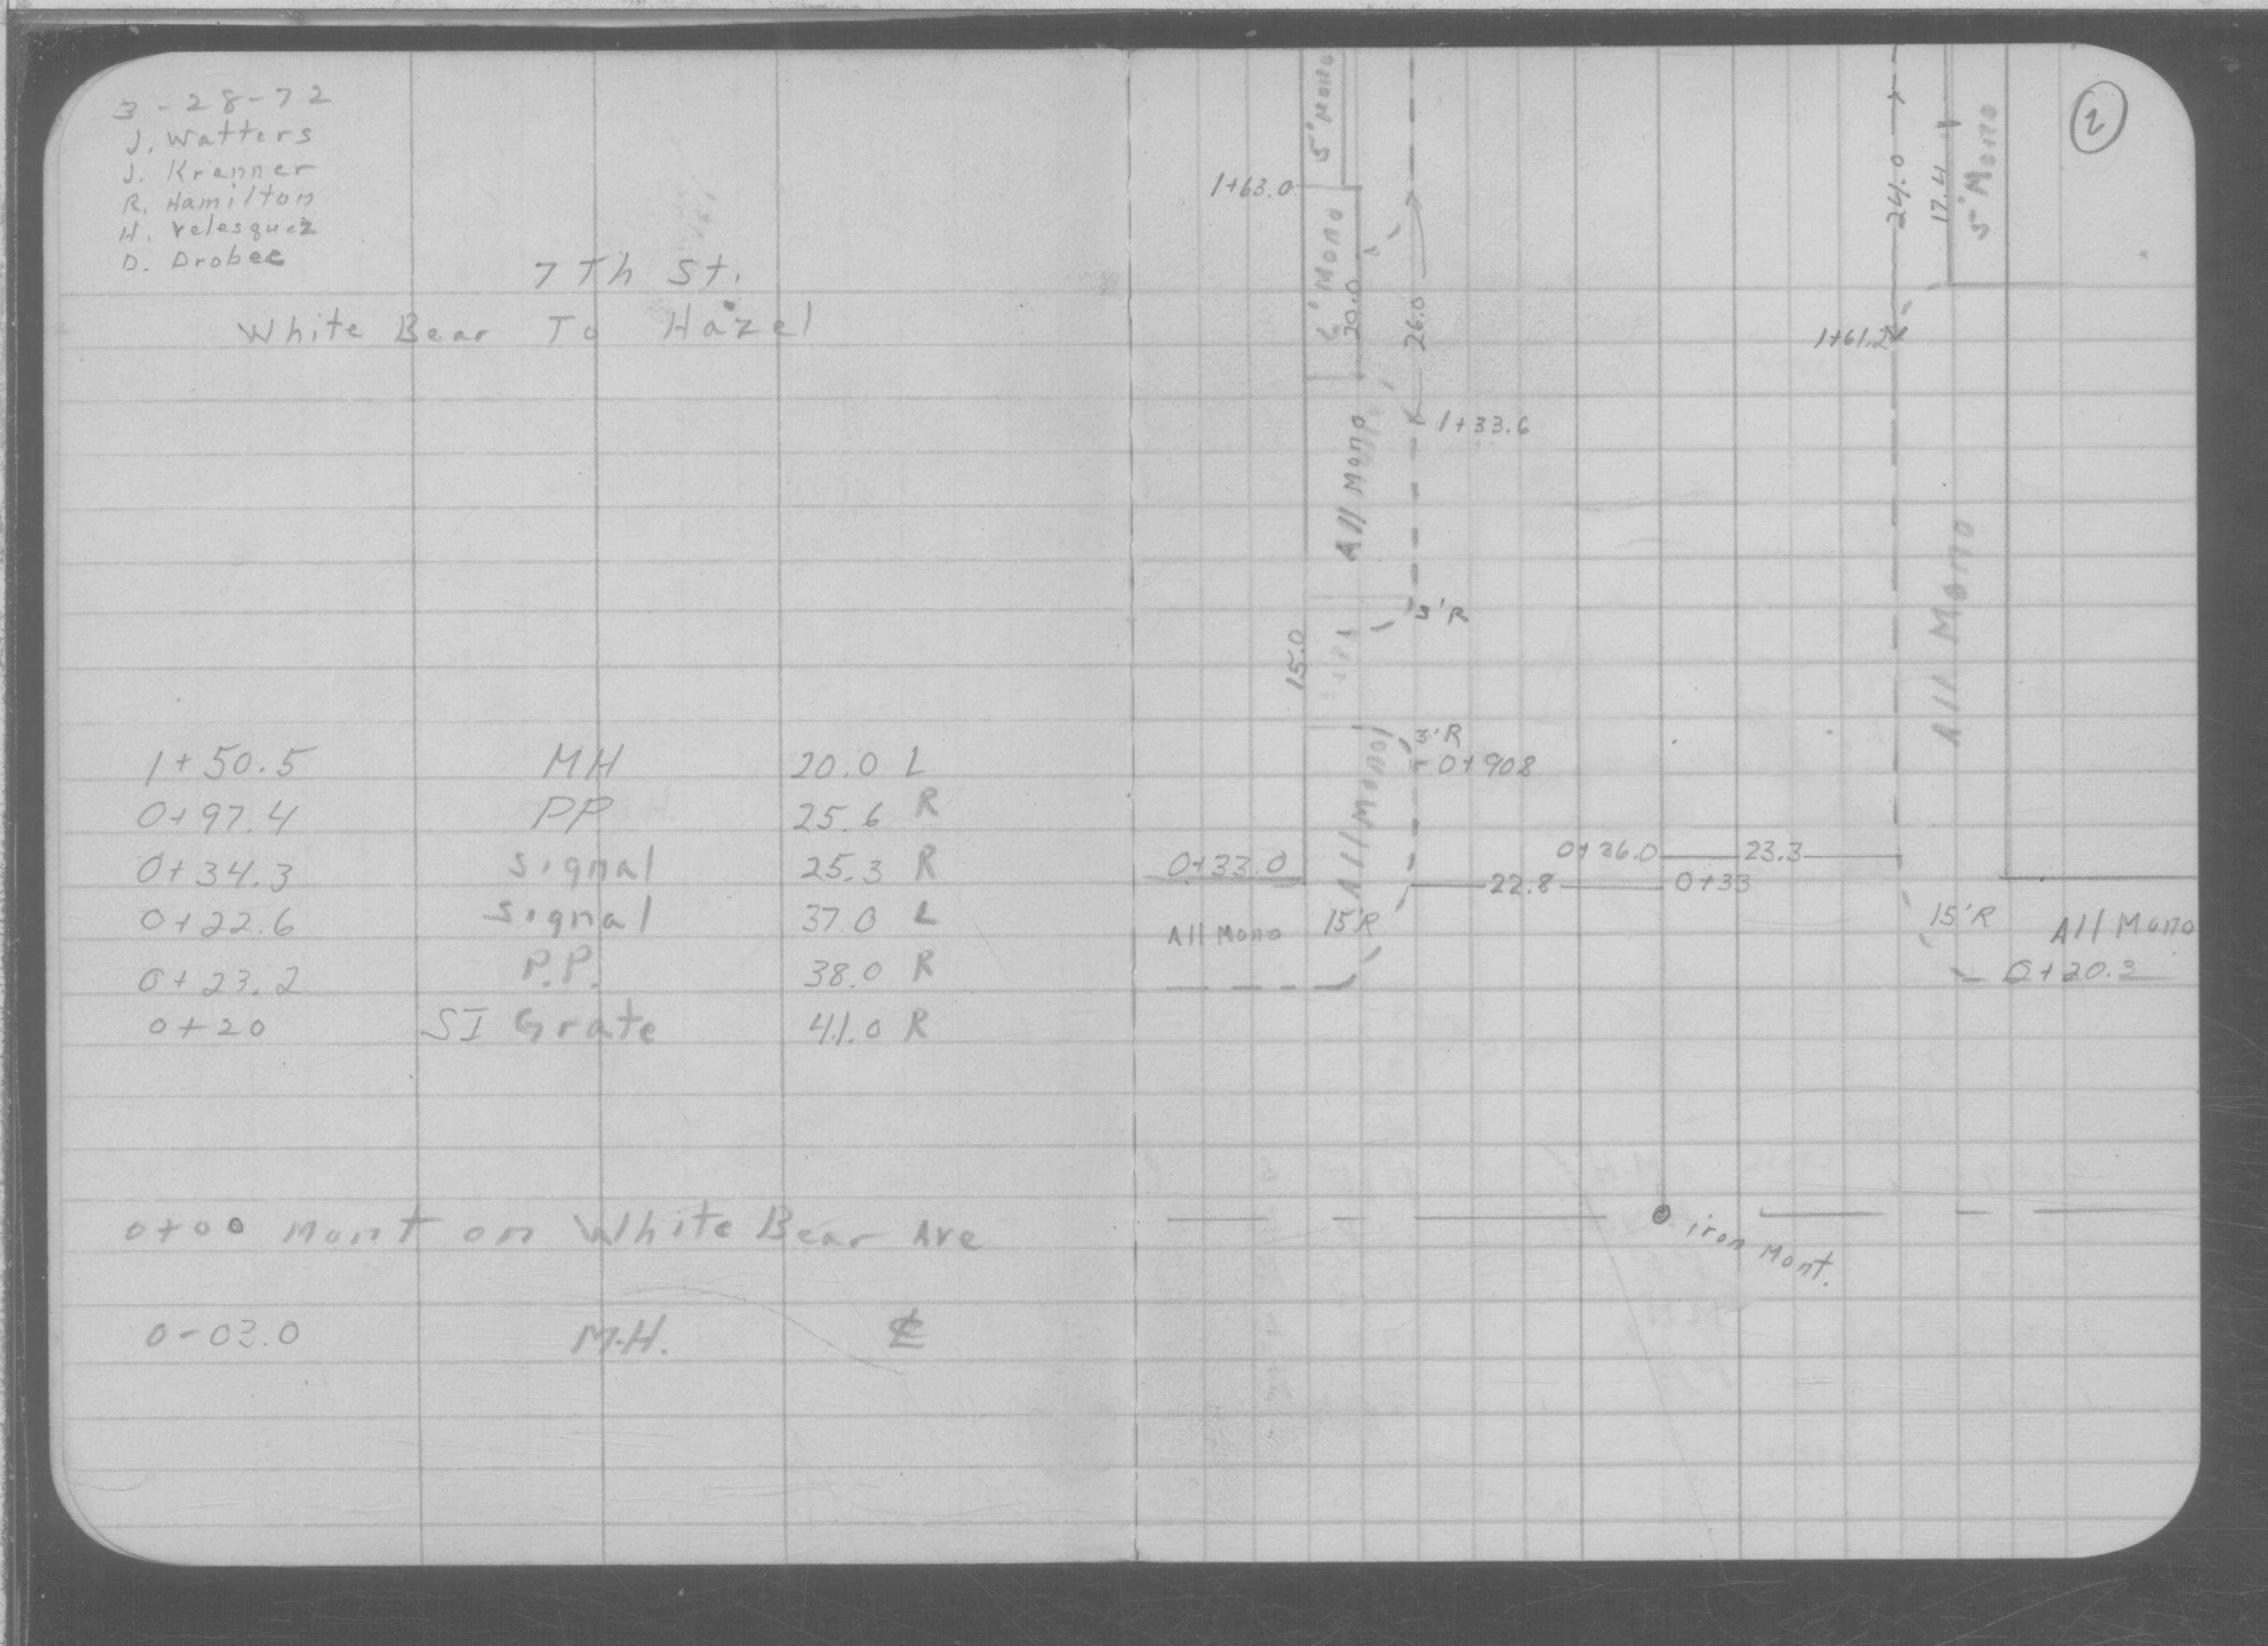 3-28-72
J. Watters
J. Krenner
R. Hamilton
H. Velesquez
D. Drobec
7Th St.
White Bear To Hazel
1+50.5 MH 20.0 L
0+97.4 PP 25.6 R
0+34.3 Signal 25.3 R
0+22.6 Signal 37.0 L
0+23.2 P.P. 38.0 R
0+20 SI Grate 41.0 R
0+00 Mont on White Bear Ave
0-03.0 M.H. ℄
2
5' Mono
24.0
17.4
5' Mono
1+63.0
6' Mono
20.0
26.0
1+61.2
1+33.6
All Mono
All Mono
3'R
15.0
3'R
0+908
All Mono
0+36.0 23.3
0+33.0
22.8 0+33
All Mono 15'R
15'R All Mono
0+20.3
iron Mont.